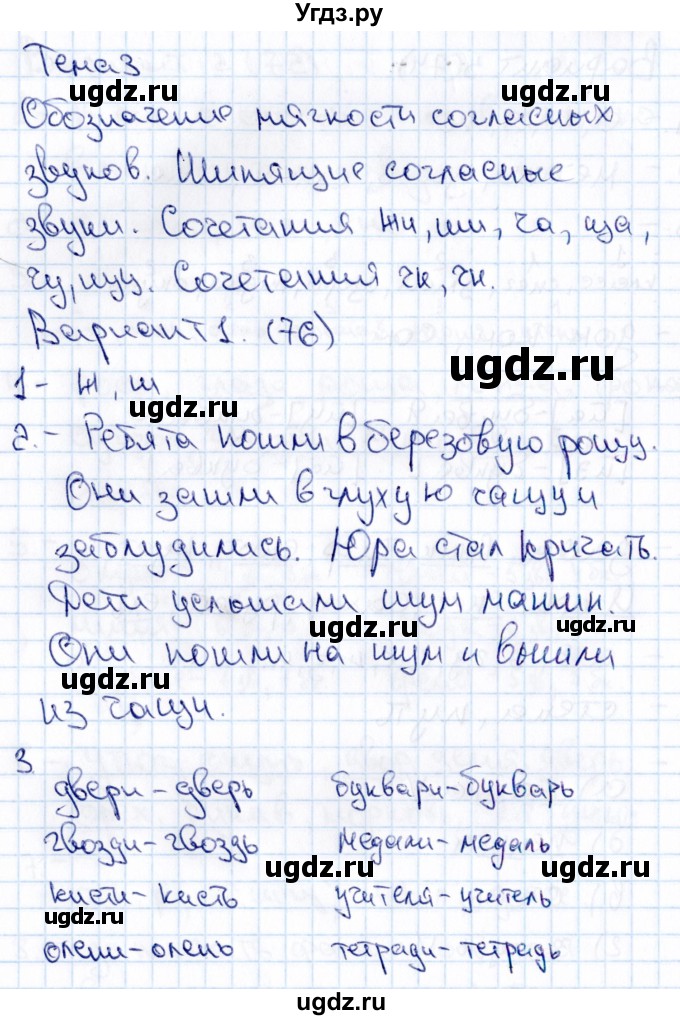 Угдз.ру
Тема 3
ugdz.ru
Обозначение мягкости согласных
звуков. Шипящие согласные
звуки. Сочетания жи, ши, ча, ща,
чу, щу. Сочетания чк, чн.
Вариант 1. (76)
ugdz.ru
1 - ж, ш
ugdz.ru
2. - Ребята пошли в березовую рощу.
Они зашли в глухую чащу и
заблудились. Юра стал кричать.
ugdz.ru
Дети услышали шум машин.
ugdz.ru
Они пошли на шум и вышли
ugdz.ru
из чащи.
3
двери - дверь буквари - букварь
гвозди - гвоздь медали - медаль
ugdz.ru ugdz.ru
кисти - кисть учителя - учитель
олени - олень тетради - тетрадь
ugdz.ru
ugdz.ru